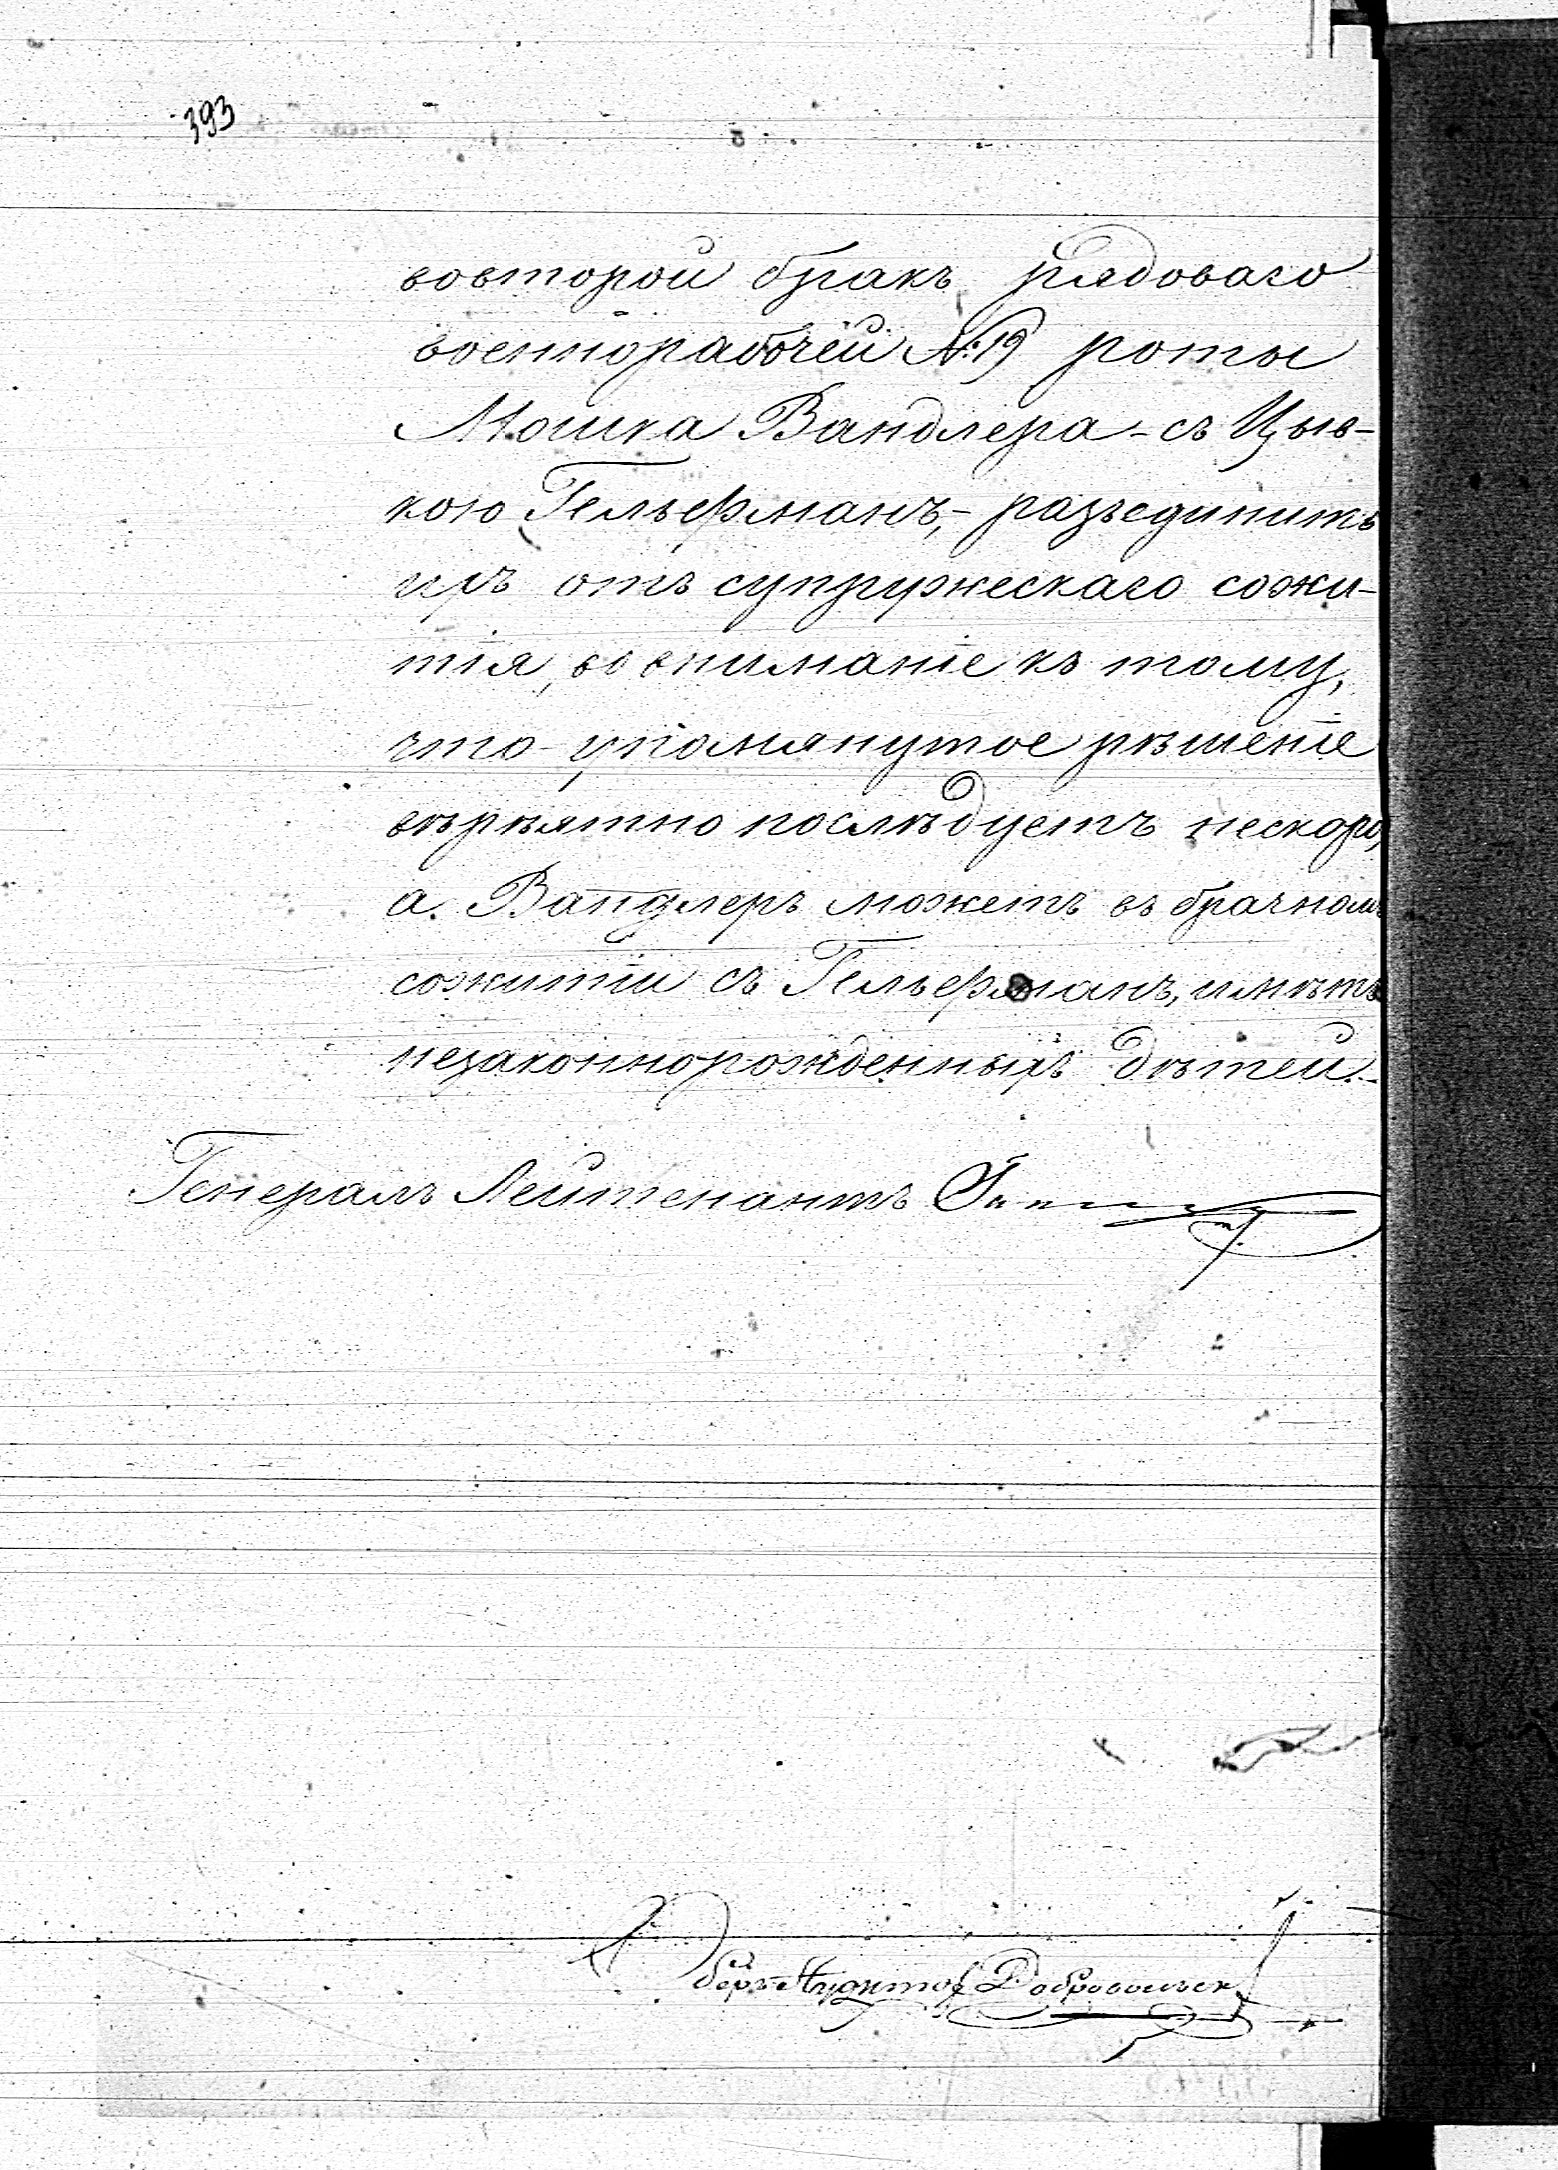 393
вовторой бракъ рядоваго
военнорабочей №19 роты
Мошка Вандлера - съ Цыв-
кою Гельерманъ, - разъединить
ихъ отъ супружескаго сожи-
тія, во вниманіе къ тому,
что упомянутое рѣшеніе
вѣрѣятно послѣдуетъ нескоро,
а Вандлеръ можетъ въ брачномъ
сожитіи съ Гельерманъ, имѣть
незаконнорожденныхъ дѣтей.
Генералъ Лейтенантъ
Оберъ Аудиторъ Добровольск